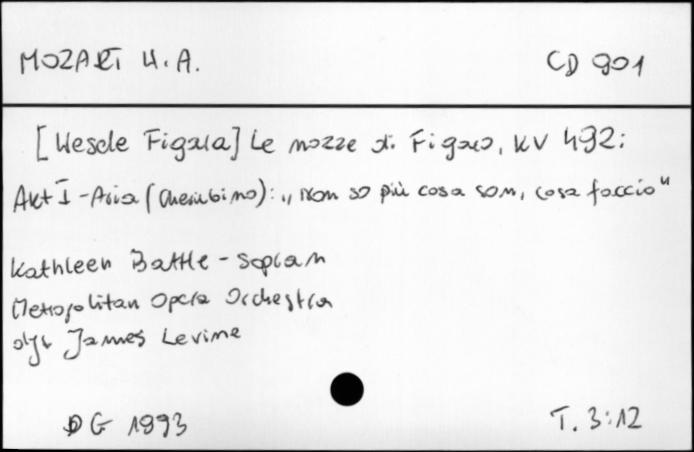 MOZART W. A. CD 901
[Wesele Figara] Le nozze di Figaro, KV 492:
Akt I - Aria (Cherubino): „Non so più cosa son, cosa faccio"
Kathleen Battle - sopran
Metropolitan Opera Orchestra
dyr James Levine
DG 1993 T. 3:12